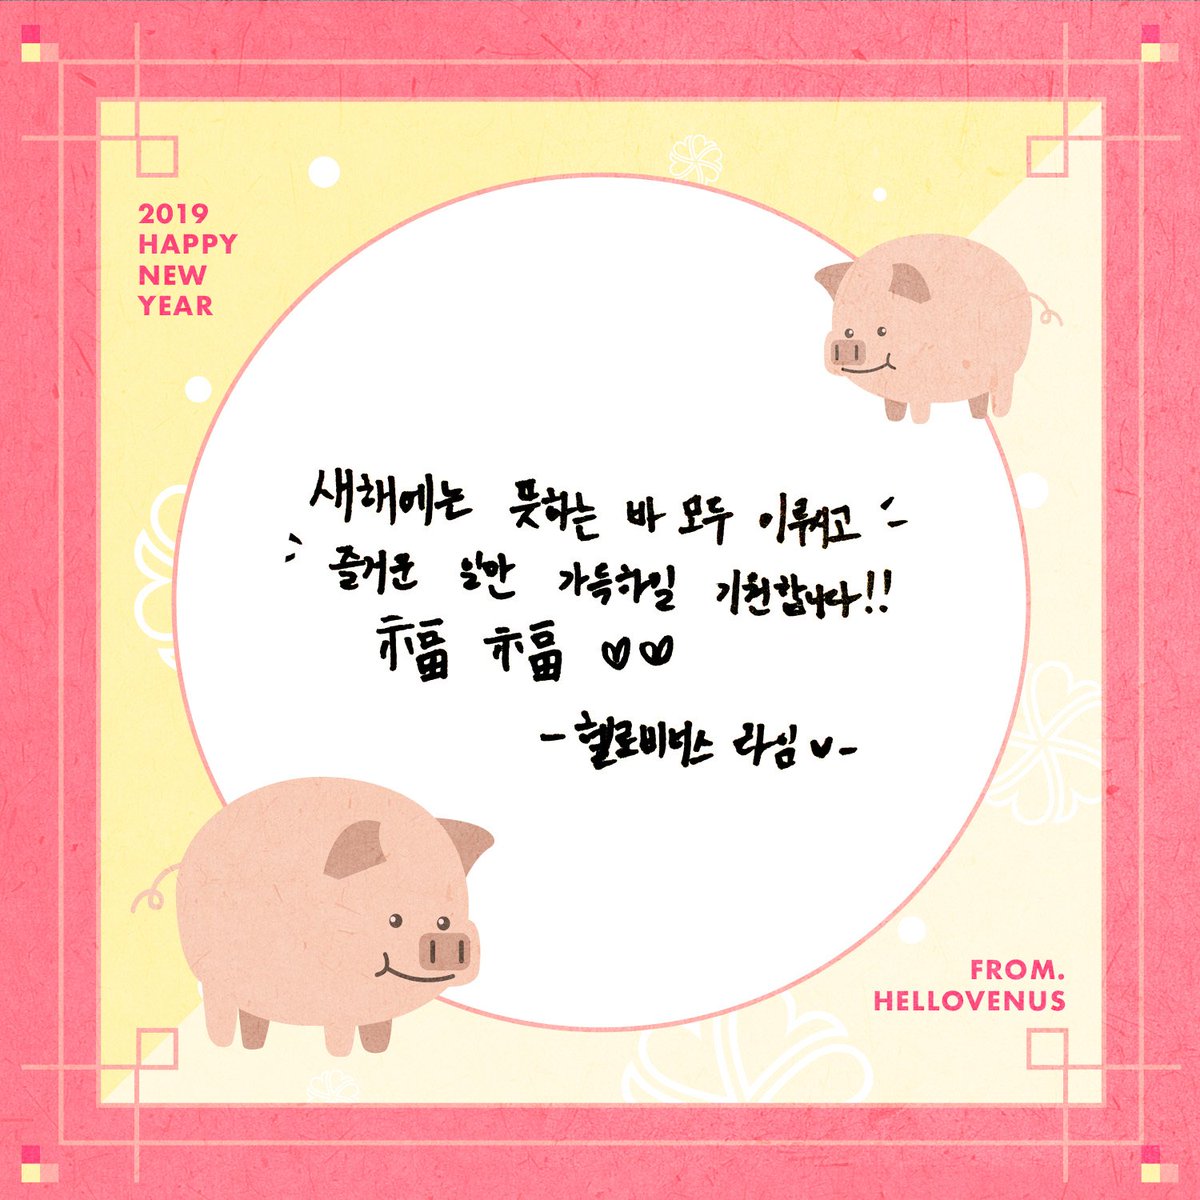 2019
HAPPY
NEW
YEAR
새해에는 뜻하는 바 모두 이루시고
즐거운 일만 가득하길 기원합니다!!
福 福 ♡♡
-헬로비너스 라임♥-
FROM.
HELLOVENUS